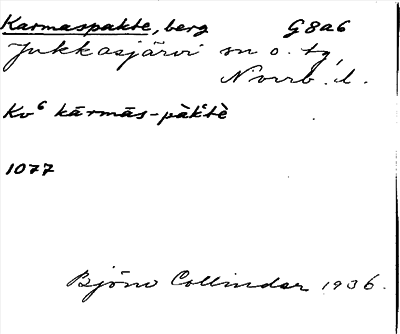 Karmaspakte, berg G8a6
Jukkasjärvi sn o. tg,
Norrb. l.
Kv⁶ kārmās-pàktè
1077
Björn Collinder 1936.